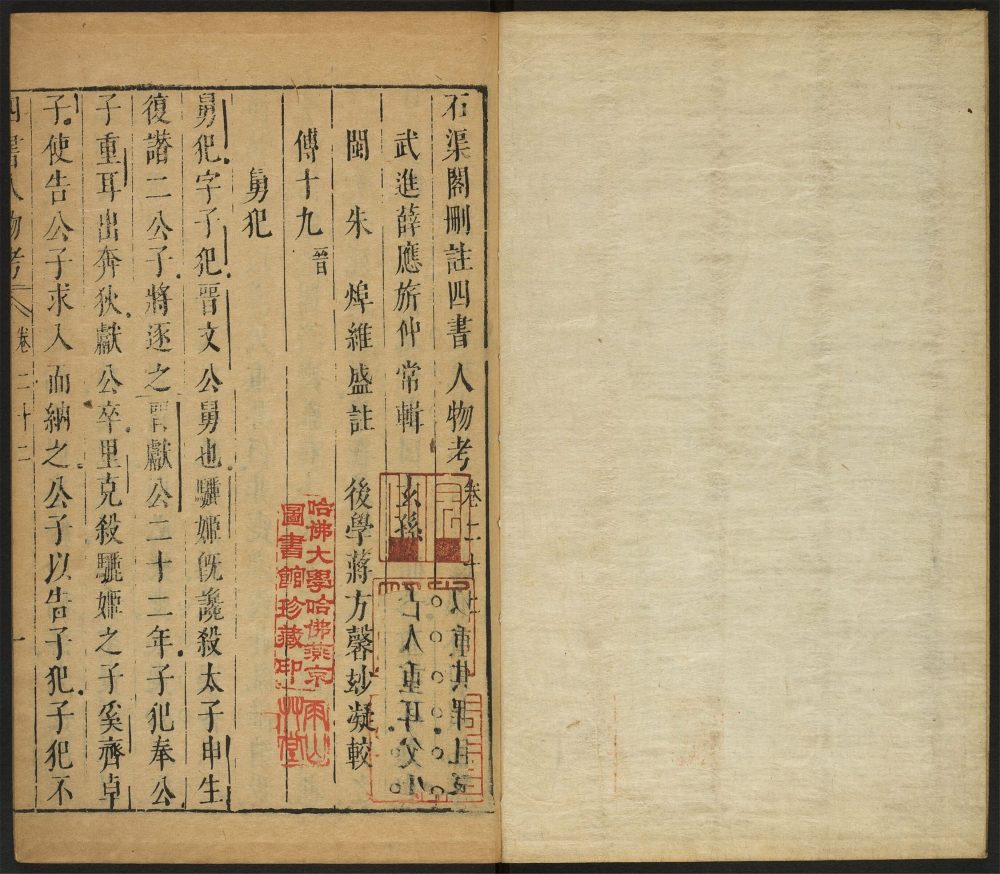 石渠閣刪註四書人物考卷二十
武進薛應旂仲常輯 玄孫
閩 朱 焞維盛註 後學蔣方馨玅凝較
傅十九 晉
舅犯
舅犯字子犯晉文公舅也驪姬既讒殺太子申生
復譖二公子將逐之晉獻公二十二年子犯奉公
子重耳出奔狄獻公卒里克殺驪姬之子奚齊卓
子使告公子求入而納之公子以告子犯子犯不
四書人物考 卷二十二 一
以重其罪且
亡人重耳父
哈佛大學哈佛燕京
圖書館珍藏印
雨山
草堂